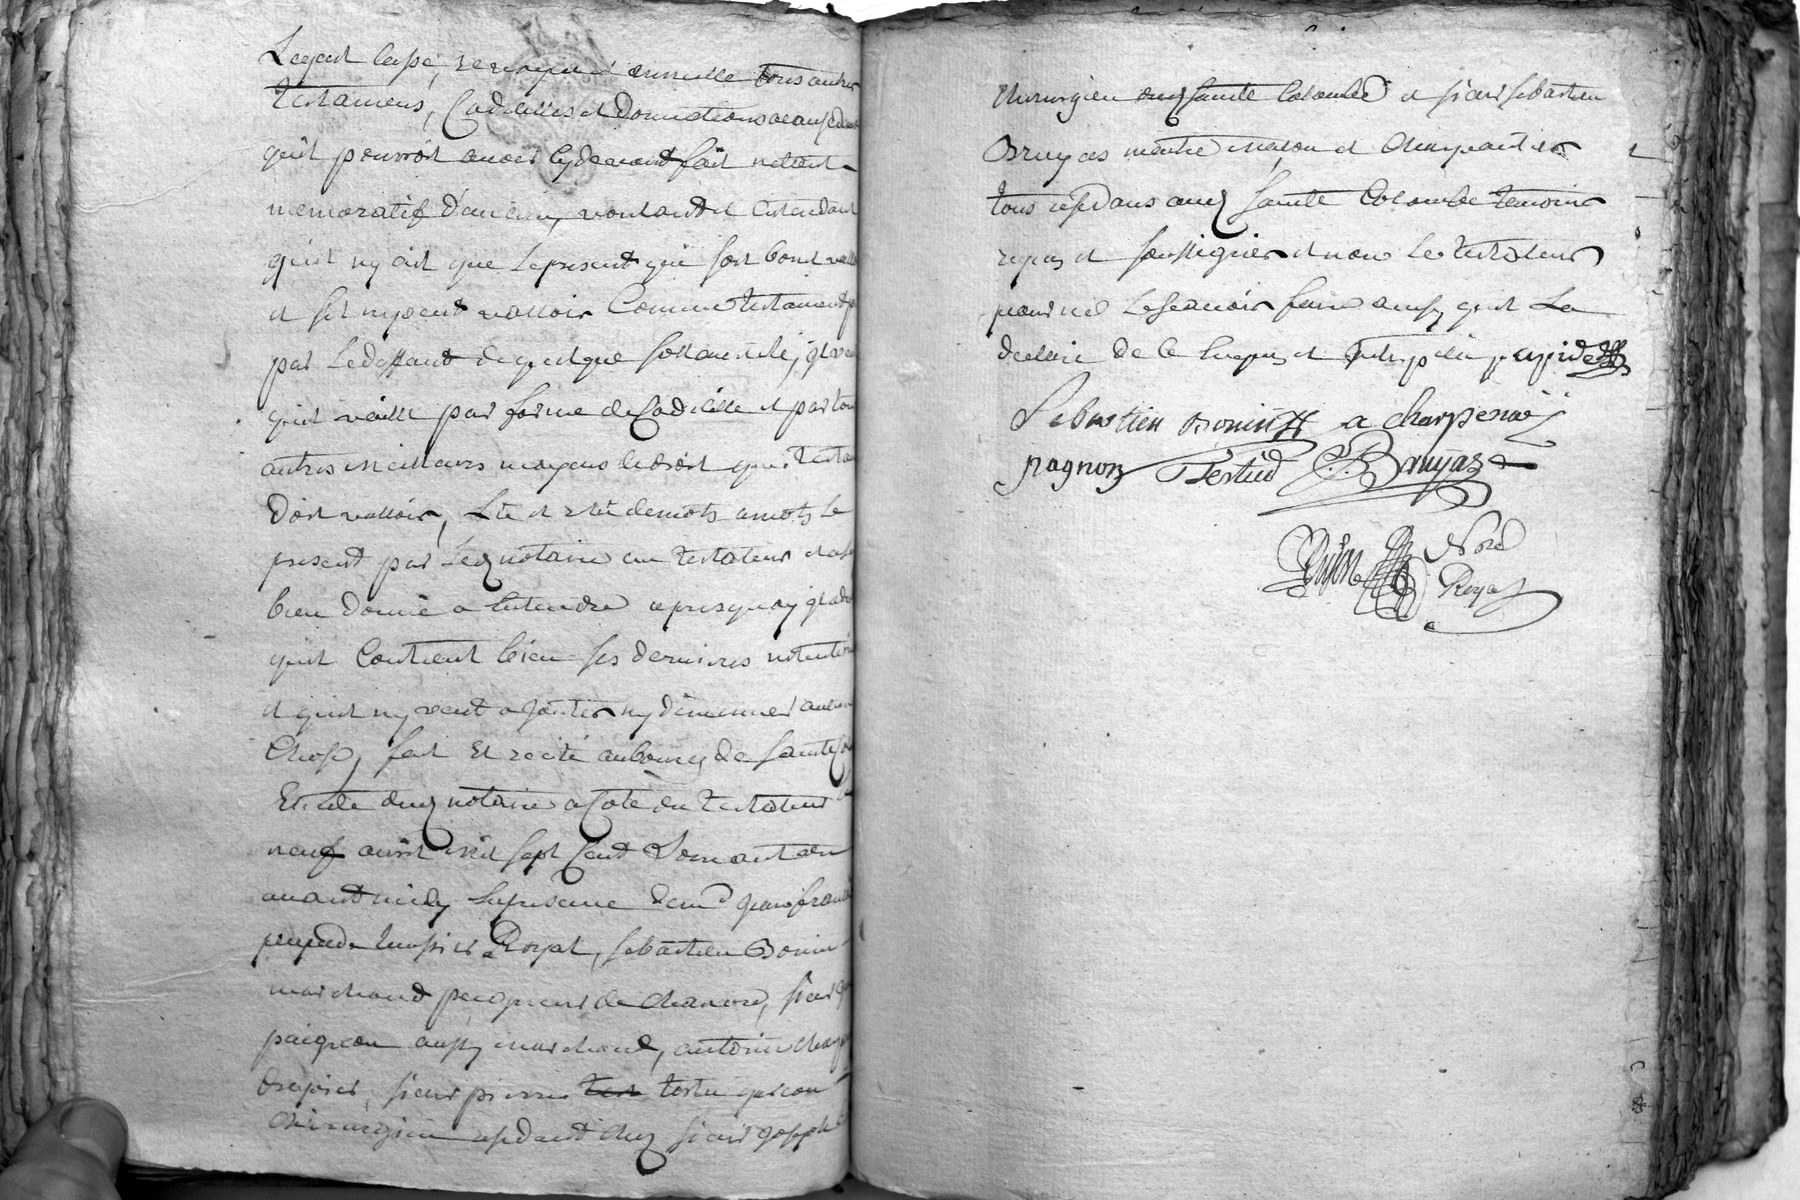 Legart laissé, revoque et annulle tous autres
testamens, Codicilles et donnations a cause de mort
qu'il pourroit avoir cy devant fait n'etant
memoratif d'aucun, voulant et entendant
qu'il n'y ait que le present qui soit bon et valla
et s'il ne peut valloir Comme testament
par le deffaut de quelque sollannité, il veut
qu'il vaille par forme de Codicille et par tous
autres meilleurs moyens de droit que testa
doit valloir, Lu et relu de mots a mots le
present par led notaire au testateur
bien donné a entendre apres quoy il a dit
qu'il Contient bien ses dernieres intentions
et qu'il n'y veut ajouter ny diminuer aucune
Chose, fait et recité au bourg de Sainte Co
Etude dud notaire a coté du testateur
neuf avril mil sept Cent soixante un
avant midy en presence de
huissier Royal, Sebastien Bonin
marchand peigneur de chanvre, sieur
paignon aussy marchand, antoine charp
drapier, sieur pierre testu garcon
Chirurgien residant chez sieur joseph
chirurgien aud Sainte Colombe et sieur Sebastien
Bruyas maitre masson et charpentier
tous residans aud Sainte Colombe temoins
requis et soussignés et non le testateur
pour ne le scavoir faire ainsy qu'il La
declaré de ce enquis et
Sebastien Bonin a charpenay
pagnon Testud S. Bruyas
Guyon Nore
Royal